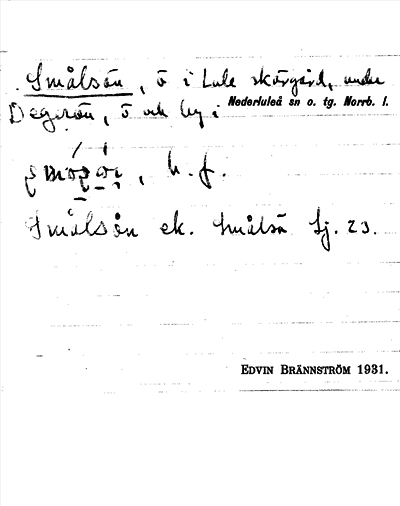 Smålsön, ö i Lule skärgård, under
Degerön, ö och by i Nederluleå sn o. tg. Norrb. l.
, h. f.
Smålsön ek. Smålsö Lj. 23.
EDVIN BRÄNNSTRÖM 1931.